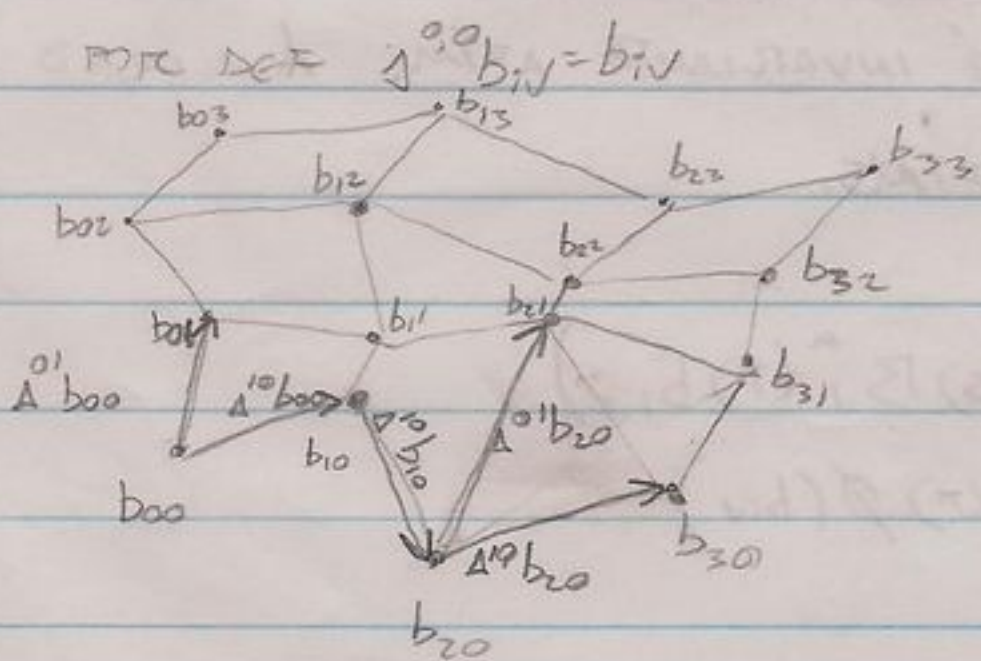 POR DEF Δ^{0,0}b_{ij} = b_{ij}
b_{03} b_{13}
b_{12} b_{23} b_{33}
b_{02}
b_{22} b_{32}
b_{01} b_{11} b_{21}
b_{31}
Δ^{01}b_{00} Δ^{10}b_{00} Δ^{10}b_{10} Δ^{01}b_{20}
b_{10}
b_{00}
b_{30}
Δ^{10}b_{20}
b_{20}